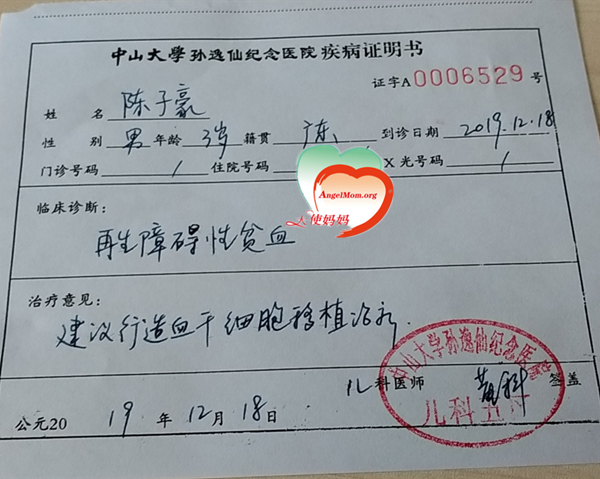 中山大学孙逸仙纪念医院疾病证明书
证字A0006529号
姓 名 陈子豪
性 别 男 年龄 3岁 籍贯 广东 到诊日期 2019.12.18
门诊号码 / 住院号码 X光号码 /
AngelMom.org
天使妈妈
临床诊断:
再生障碍性贫血
治疗意见:
建议行造血干细胞移植治疗.
中山大学孙逸仙纪念医院
儿科医师 签盖
儿科
公元20 19 年 12 月 18 日